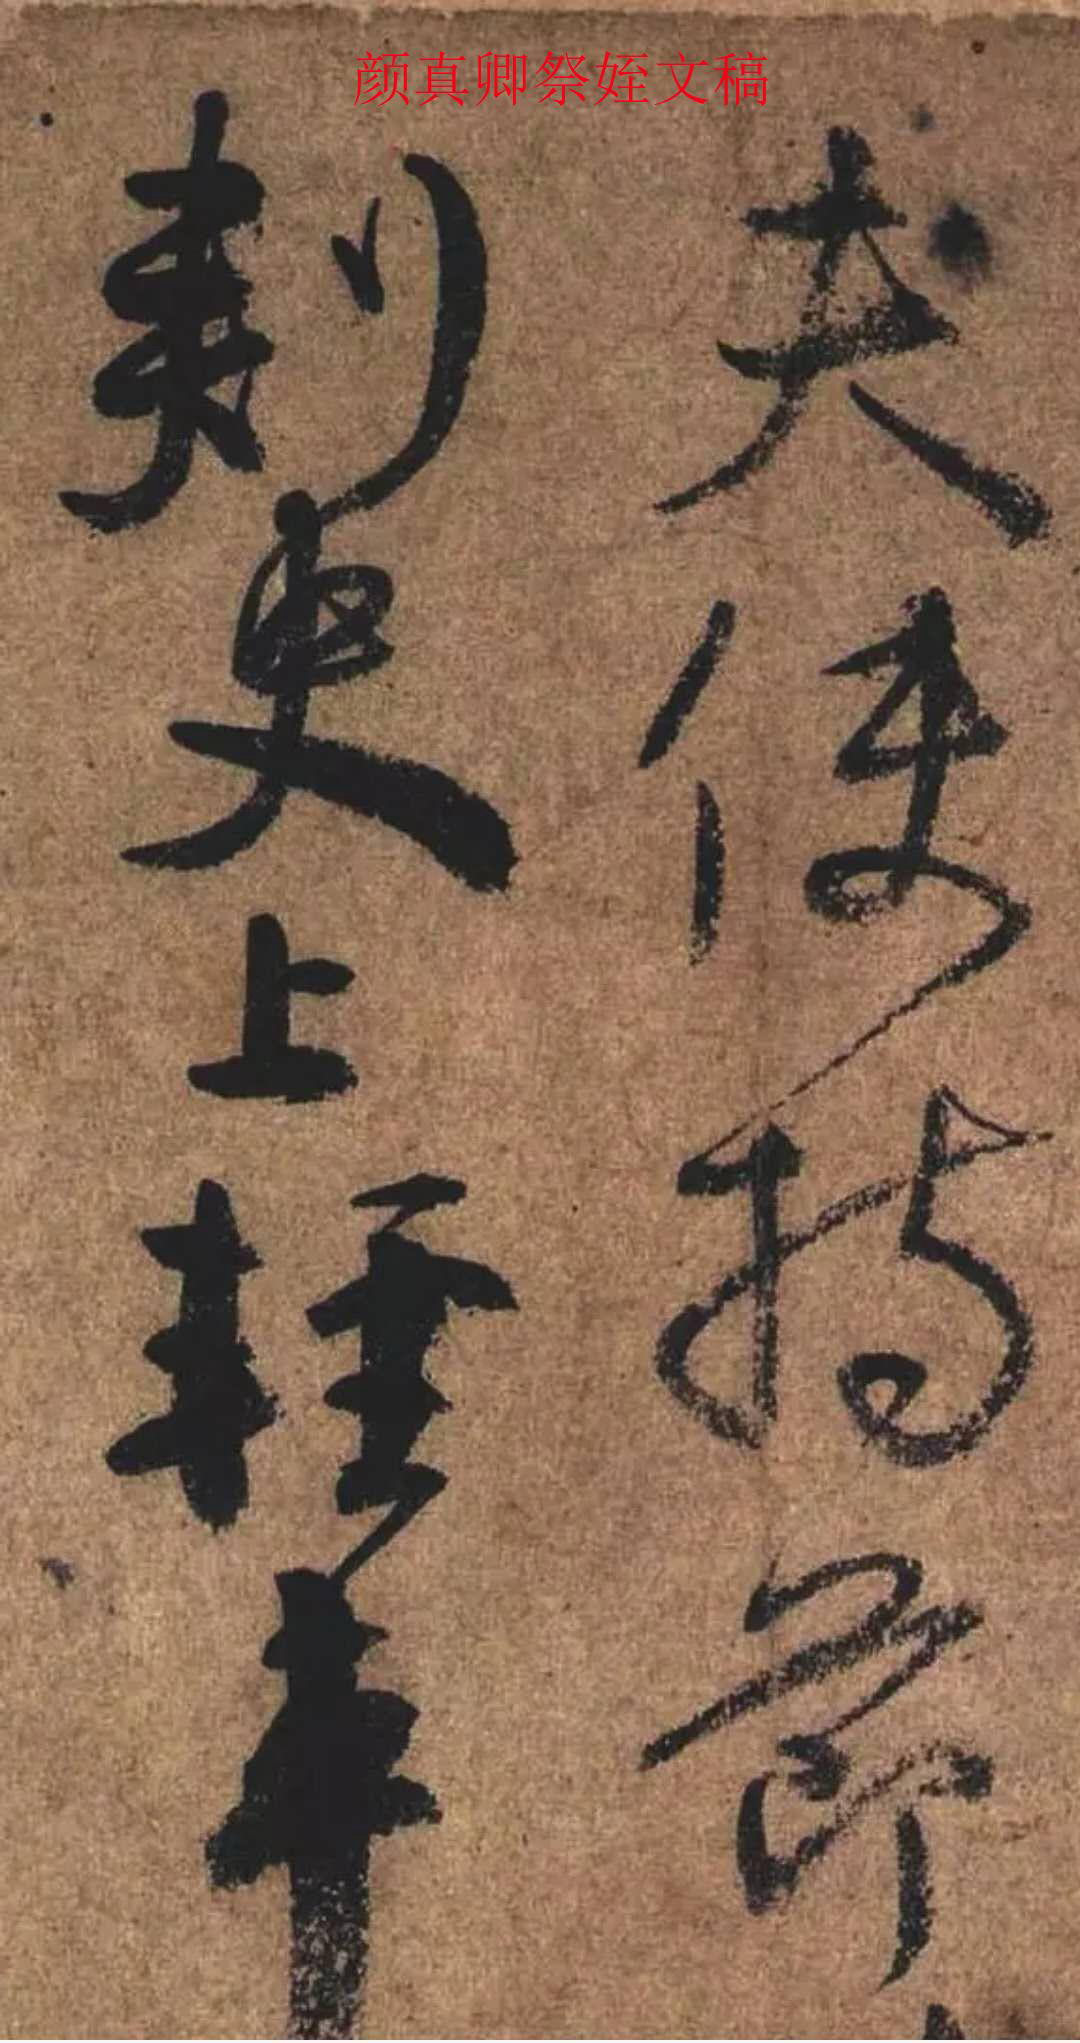 颜真卿祭姪文稿
夫使持節
刺史上輕車